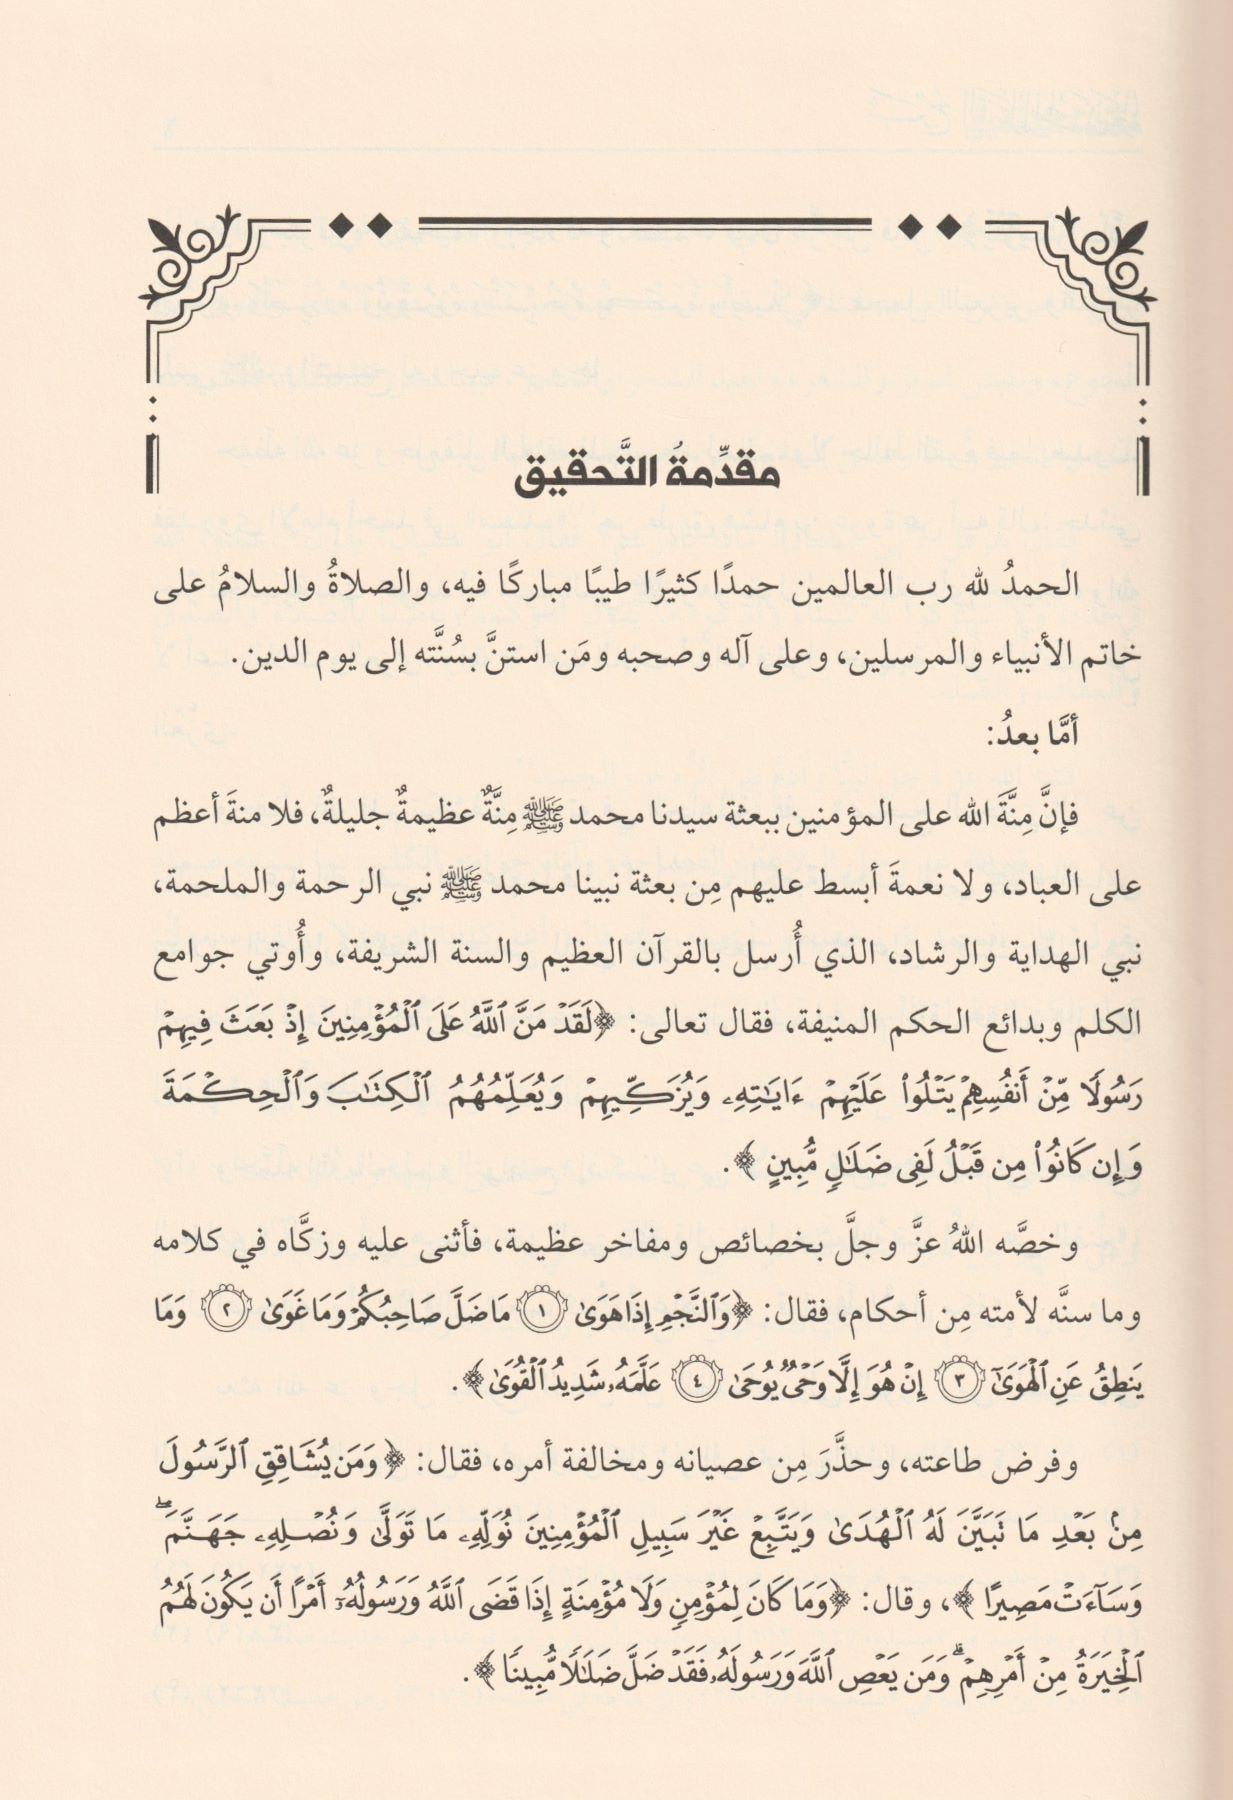 مقدِّمةُ التَّحقيق
الحمدُ لله رب العالمين حمدًا كثيرًا طيبًا مباركًا فيه، والصلاةُ والسلامُ على
خاتم الأنبياء والمرسلين، وعلى آله وصحبه ومَن استنَّ بسُنَّته إلى يوم الدين.
أمَّا بعدُ:
فإنَّ مِنَّةَ الله على المؤمنين ببعثة سيدنا محمد ﷺ مِنَّةٌ عظيمةٌ جليلةٌ، فلا منةَ أعظم
على العباد، ولا نعمةَ أبسط عليهم مِن بعثة نبينا محمد ﷺ نبي الرحمة والملحمة،
نبي الهداية والرشاد، الذي أُرسل بالقرآن العظيم والسنة الشريفة، وأُوتي جوامع
الكلم وبدائع الحكم المنيفة، فقال تعالى: ﴿لَقَدۡ مَنَّ ٱللَّهُ عَلَى ٱلۡمُؤۡمِنِينَ إِذۡ بَعَثَ فِيهِمۡ
رَسُولٗا مِّنۡ أَنفُسِهِمۡ يَتۡلُواْ عَلَيۡهِمۡ ءَايَٰتِهِۦ وَيُزَكِّيهِمۡ وَيُعَلِّمُهُمُ ٱلۡكِتَٰبَ وَٱلۡحِكۡمَةَ
وَإِن كَانُواْ مِن قَبۡلُ لَفِي ضَلَٰلٖ مُّبِينٍ﴾.
وخصَّه اللهُ عزَّ وجلَّ بخصائص ومفاخر عظيمة، فأثنى عليه وزكَّاه في كلامه
وما سنَّه لأمته مِن أحكام، فقال: ﴿وَٱلنَّجۡمِ إِذَا هَوَىٰ ١ مَا ضَلَّ صَاحِبُكُمۡ وَمَا غَوَىٰ ٢ وَمَا
يَنطِقُ عَنِ ٱلۡهَوَىٰٓ ٣ إِنۡ هُوَ إِلَّا وَحۡيٞ يُوحَىٰ ٤ عَلَّمَهُۥ شَدِيدُ ٱلۡقُوَىٰ﴾.
وفرض طاعته، وحذَّرَ مِن عصيانه ومخالفة أمره، فقال: ﴿وَمَن يُشَاقِقِ ٱلرَّسُولَ
مِنۢ بَعۡدِ مَا تَبَيَّنَ لَهُ ٱلۡهُدَىٰ وَيَتَّبِعۡ غَيۡرَ سَبِيلِ ٱلۡمُؤۡمِنِينَ نُوَلِّهِۦ مَا تَوَلَّىٰ وَنُصۡلِهِۦ جَهَنَّمَۖ
وَسَآءَتۡ مَصِيرًا﴾، وقال: ﴿وَمَا كَانَ لِمُؤۡمِنٖ وَلَا مُؤۡمِنَةٍ إِذَا قَضَى ٱللَّهُ وَرَسُولُهُۥٓ أَمۡرًا أَن يَكُونَ لَهُمُ
ٱلۡخِيَرَةُ مِنۡ أَمۡرِهِمۡۗ وَمَن يَعۡصِ ٱللَّهَ وَرَسُولَهُۥ فَقَدۡ ضَلَّ ضَلَٰلٗا مُّبِينٗا﴾.